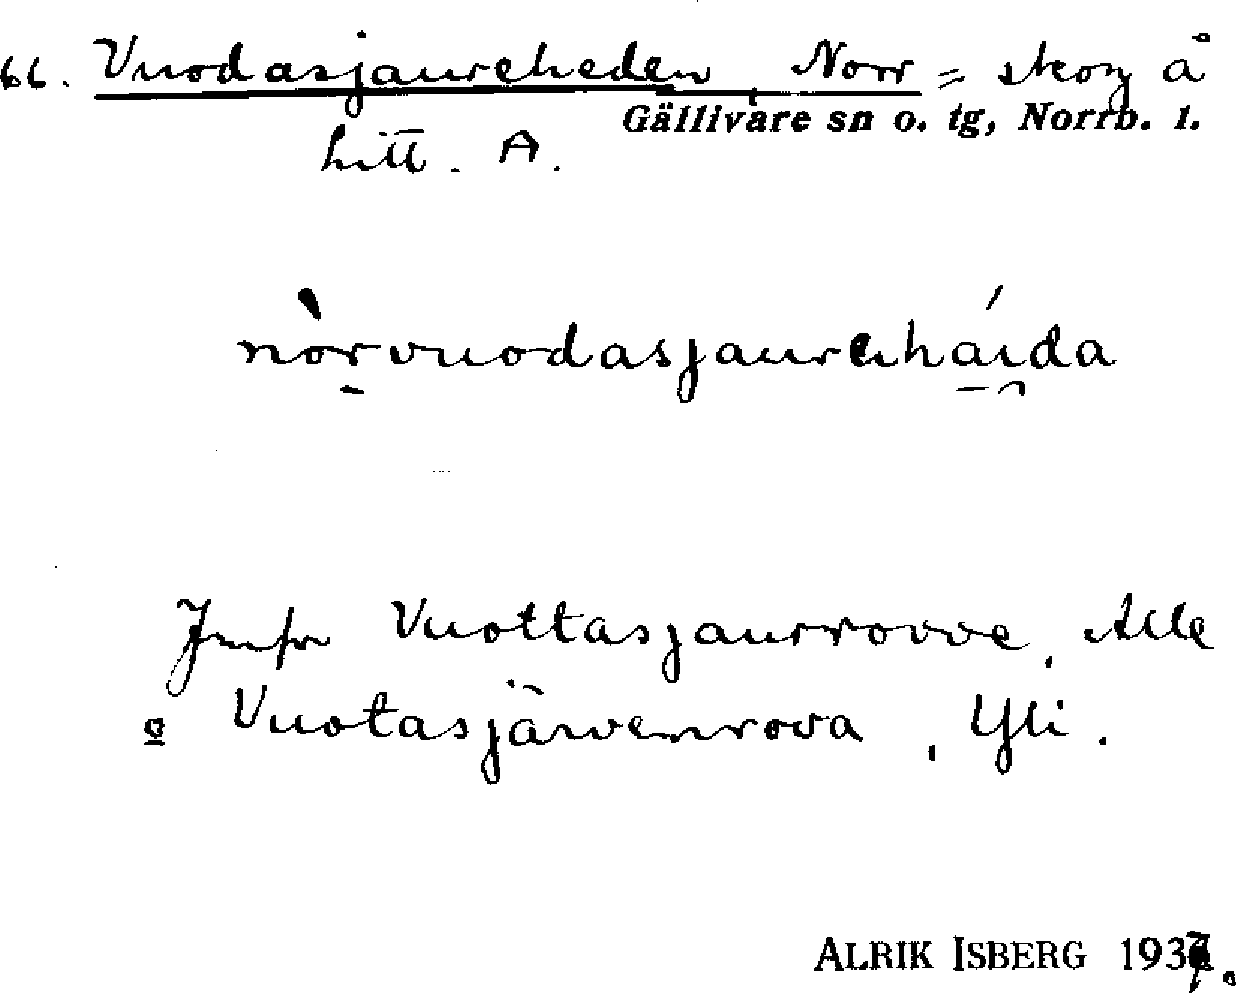 66. Vuodasjaureheden, Norr = skog å
Gällivare sn o. tg, Norrb. l.
hitt. A.
nòrvuodasjaureháida
Jmfr Vuottasjaurrovve, Alle
o Vuotasjärvenrova, Yli.
ALRIK ISBERG 1937.